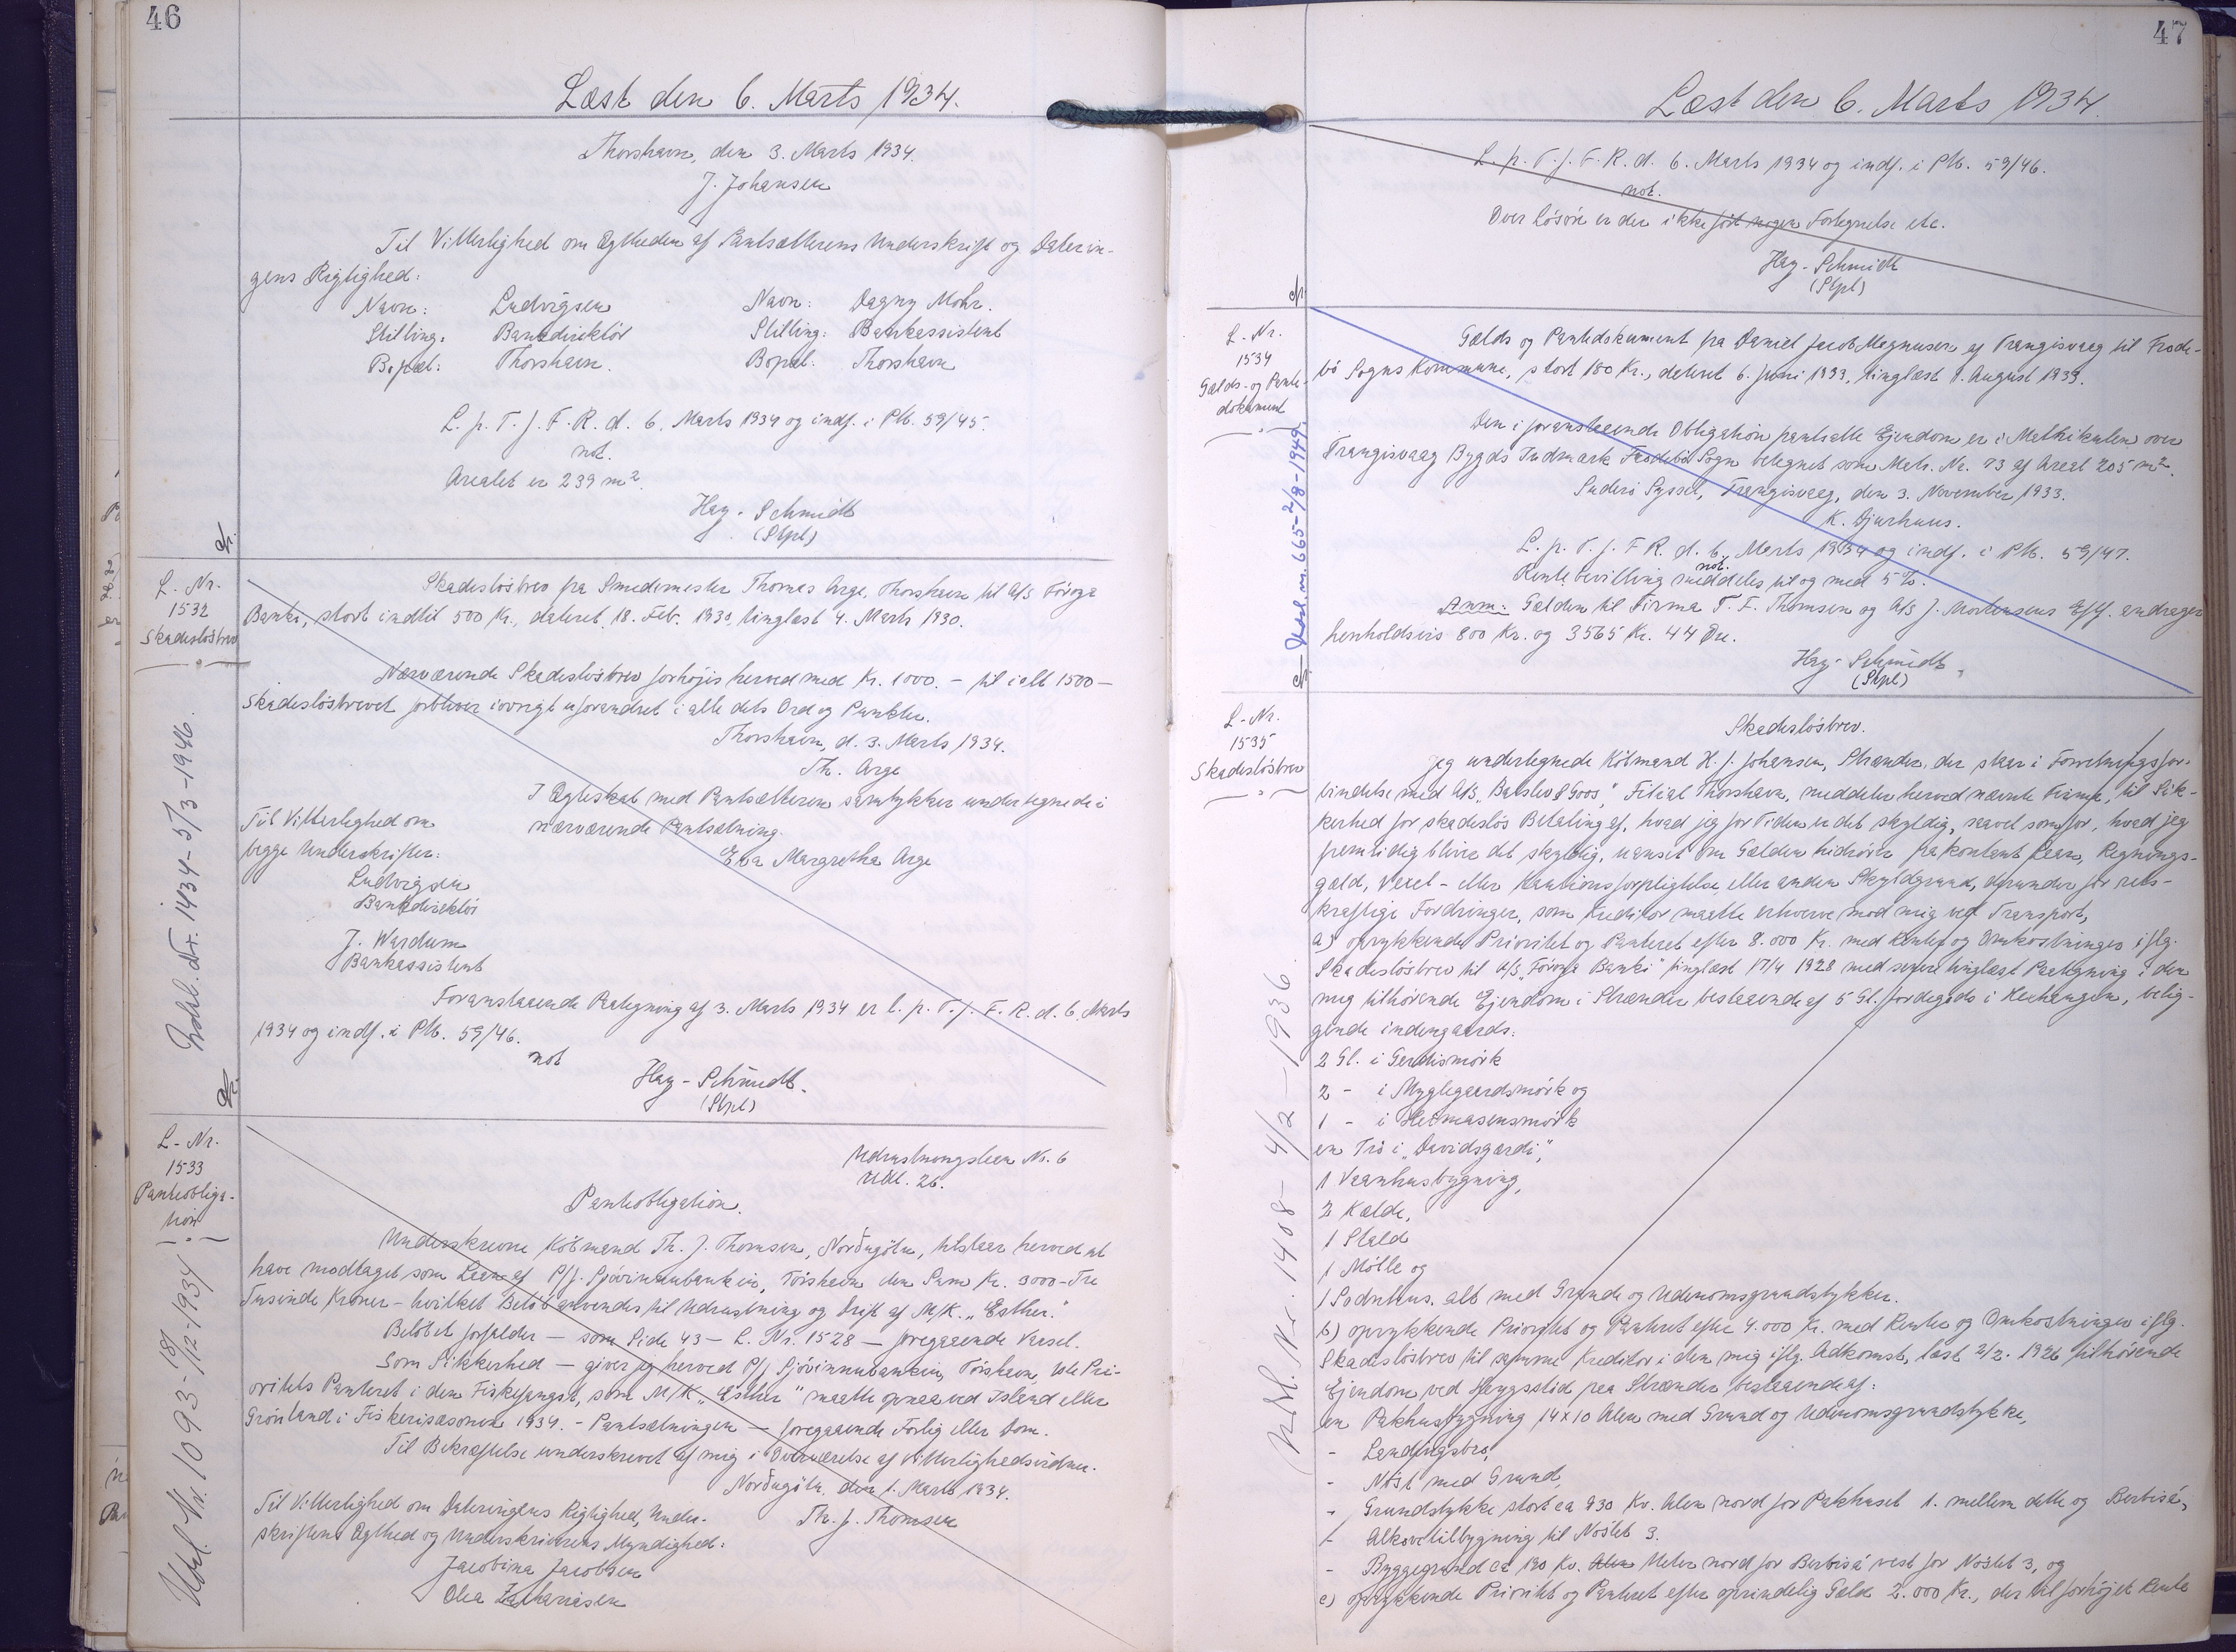 46
Læst den 6. Marts 1934.
Thorshavn, den 3. Marts 1934.
J. Johansen
Til Vitterlighed om Ægtheden af Pantsætterens Underskrift og Daterin-
gens Rigtighed:
Navn: Ludvigsen Navn: Dagny Mohr.
Stilling: Bankdirektör Stilling: Bankassistent
Bopæl: Thorshavn. Bopæl: Thorshavn
L. p. T. f. F. R. d. 6. Marts 1934 og indf. i Pb. 59/45.
not.
Arealet er 239 m2.
Hay-Schmidt
(Stpl)
L. Nr.
1532
Skadeslösbrev
Skadeslösbrev fra Smedemester Thomas Arge, Thorshavn til A/S Föroya
Banki, stort indtil 500 Kr., dateret 18. Feb. 1930, tinglæst 4. Marts 1930.
Nærværende Skadeslösbrev forhöjes herved med Kr. 1000. - til i alt 1500 -
Skadeslösbrevet forbliver iövrigt uforandret i alle dets Ord og Punkter.
Thorshavn, d. 3. Marts 1934.
Th. Arge
I Ægteskab med Pantsætteren samtykker undertegnede i
nærværende Pantsætning.
Eva Margretha Arge
Til Vitterlighed om
begge Underskrifter:
Ludvigsen
Bankdirektör
J. Wardum
Bankassistent
Foranstaaende Paategning af 3. Marts 1934 er l. p. T. f. F. R. d. 6. Marts
1934 og indf. i Pb. 59/46.
not
Hay-Schmidt.
(Stpl)
Nr. 1434-5/3-1946.
L. Nr.
1533
Panteobliga-
tion
Udrustningslaan Nr. 6
Udl. 26.
Panteobligation.
Underskrevne Köbmand Th. J. Thomsen, Norðugötu, tilstaar herved at
have modtaget som Laan af P/f. Sjóvinnubankin, Tórshavn den Sum Kr. 3000 - Tre
Tusinde Kroner - hvilket Belöb anvendes til Udrustning og Drift af M/K. "Esther."
Belöbet forfalder - som Side 43 - L. Nr. 1528 - foregaaende Varsel.
Som Sikkerhed - giver jeg herved P/f Sjóvinnubankin, Tórshavn, 1ste Pri-
oritets Panteret i den Fiskefangst, som M/K "Esther" maatte opnaa ved Island eller
Grönland i Fiskerisæsonen 1934. - Pantsætningen - foregaaende Forlig eller Dom.
Til Bekræftelse underskrevet af mig i Overværelse af Vitterlighedsvidner.
Norðugötu, den 1. Marts 1934.
Th. J. Thomsen
Til Vitterlighed om Dateringens Rigtighed, Under-
skriftens Ægthed og Underskriverens Myndighed:
Jacobina Jacobsen
Olea Zachariasen
Udsl. Nr. 1093-18/12-1934
47
Læst den 6. Marts 1934.
L. p. T. f. F. R. d. 6. Marts 1934 og indf. i Pb. 59/46.
not.
Over Lösöre er der ikke fört nogen Fortegnelse etc.
Hay-Schmidt
(Stpl)
L. Nr.
1534
Gælds- og Pante-
dokument
Gælds og Pantedokument fra Daniel Jacob Magnusen af Trangisvaag til Frode-
bö Sogns Kommune, stort 180 Kr., dateret 6. Juni 1933, tinglæst 8. August 1933.
Den i foranstaaende Obligation pantsatte Ejendom er i Matrikulen over
Trangisvaag Bygds Indmark Frodebö Sogn betegnet som Matr. Nr. 73 af Areal 205 m2.
Suderö Syssel, Trangisvaag, den 3. November 1933.
K. Djurhuus.
L. p. T. f. F R. d. 6. Marts 1934 og indf. i Pb. 59/47.
not.
Rentebevilling meddeles til og med 5%.
Anm: Gælden til Firma T. F. Thomsen og A/S J. Mortensens Eftf. andrager
henholdsvis 800 Kr. og 3565 Kr. 44 Öre.
Hay-Schmidt
(Stpl)
665-2/8-1949.
L. Nr.
1535
Skadeslösbrev
Skadeslösbrev.
Jeg undertegnede Köbmand H. J. Johansen, Strænder, der staar i Forretningsfor-
bindelse med A/S. "Balslev & Goos", Filial Thorshavn, meddeler herved nævnte Firma, til Sik-
kerhed for skadeslös Betaling af, hvad jeg for Tiden er det skyldig, saavel som for, hvad jeg
fremtidig bliver det skyldig, uanset om Gælden hidrörer fra kontant Laan, Regnings-
gæld, Vexel- eller Kautionsforpligtelse eller anden Skyldgrund, derunder for rets-
kraftige Fordringer, som Kreditor maatte erhverve mod mig ved Transport,
a) oprykkende Prioritet og Panteret efter 8.000 Kr. med Renter og Omkostninger iflg.
Skadeslösbrev til A/S "Föroya Banki" tinglæst 17/4 1928 med senere tinglæst Paategning i den
mig tilhörende Ejendom i Strænder bestaaende af 5 Gl. Jordegods i Husehaugen, belig-
gende indengaards:
2 Gl. i Gerdismörk
2 - i Myglegaardsmörk og
1 - i Heimasensmörk
en Trö i "Davidsgærdi",
1 Vaaningsbygning,
2 Kælde,
1 Stald
1 Mölle og
1 Sodnhus. alt med Grunde og Udenomsgrundstykker.
b) oprykkende Prioritet og Panteret efter 4.000 Kr. med Renter og Omkostninger iflg.
Skadeslösbrev til samme Kreditor i den mig iflg. Adkomst, læst 2/2. 1926 tilhörende
Ejendom ved paa Strænder bestaaende af:
en Pakhusbygning 14x10 Alen med Grund og Udenomsgrundstykke,
- Landingsbro,
- Nöst med Grund,
- Grundstykke stort ca 930 Kv. Alen nord for Pakhuset 1. mellem dette og Berbisá,
- Alkovetilbygning til Nöstet 3.
- Byggegrund ca 190 Kv. Alen Meter nord for Berbisá vest for Nöstet 3, og
c) oprykkende Prioritet og Panteret efter oprindelig Gæld 2.000 Kr., der til forhöjet Rente
Udsl. Nr. 1408-4/2-1936.